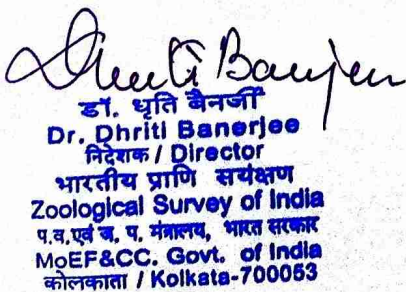 Dhriti Banerjee
डॉ. धृति बैनर्जी
Dr. Dhriti Banerjee
निदेशक / Director
भारतीय प्राणि सर्वेक्षण
Zoological Survey of India
प.व.एवं ज. प. मंत्रालय, भारत सरकार
MoEF&CC. Govt. of India
कोलकाता / Kolkata-700053